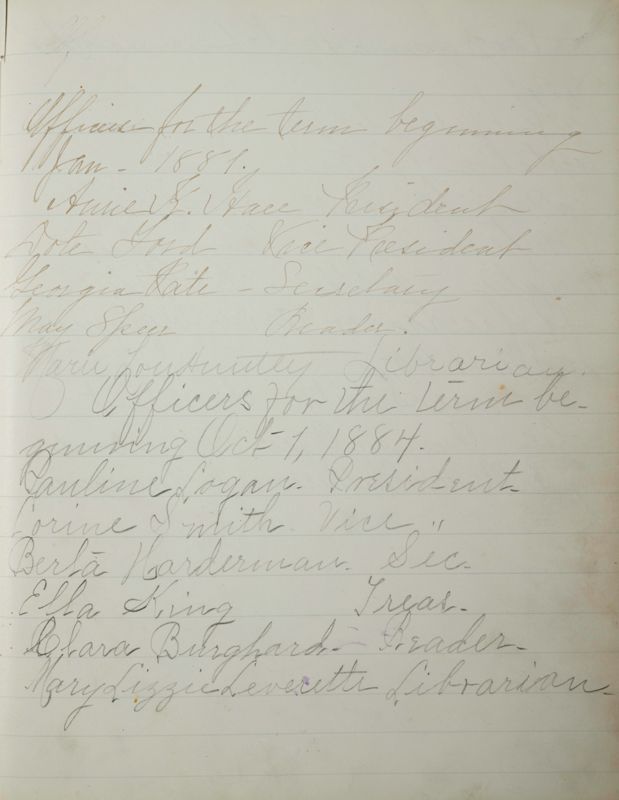 Officers for the term beginning
Jan - 1881.
Annie K. Hall President
Dote Ford Vice President
Georgia Kate - Secretary
May Speer Reader.
Mary Lou Huntley Librarian.
Officers for the term be-
gining Oct 1, 1884.
Pauline Logan. President
Corine Smith. Vice "
Berta Harderman. Sec.
Ella King Treas.
Clara Burghard - Reader.
Mary Lizzie Leverette Librarian.